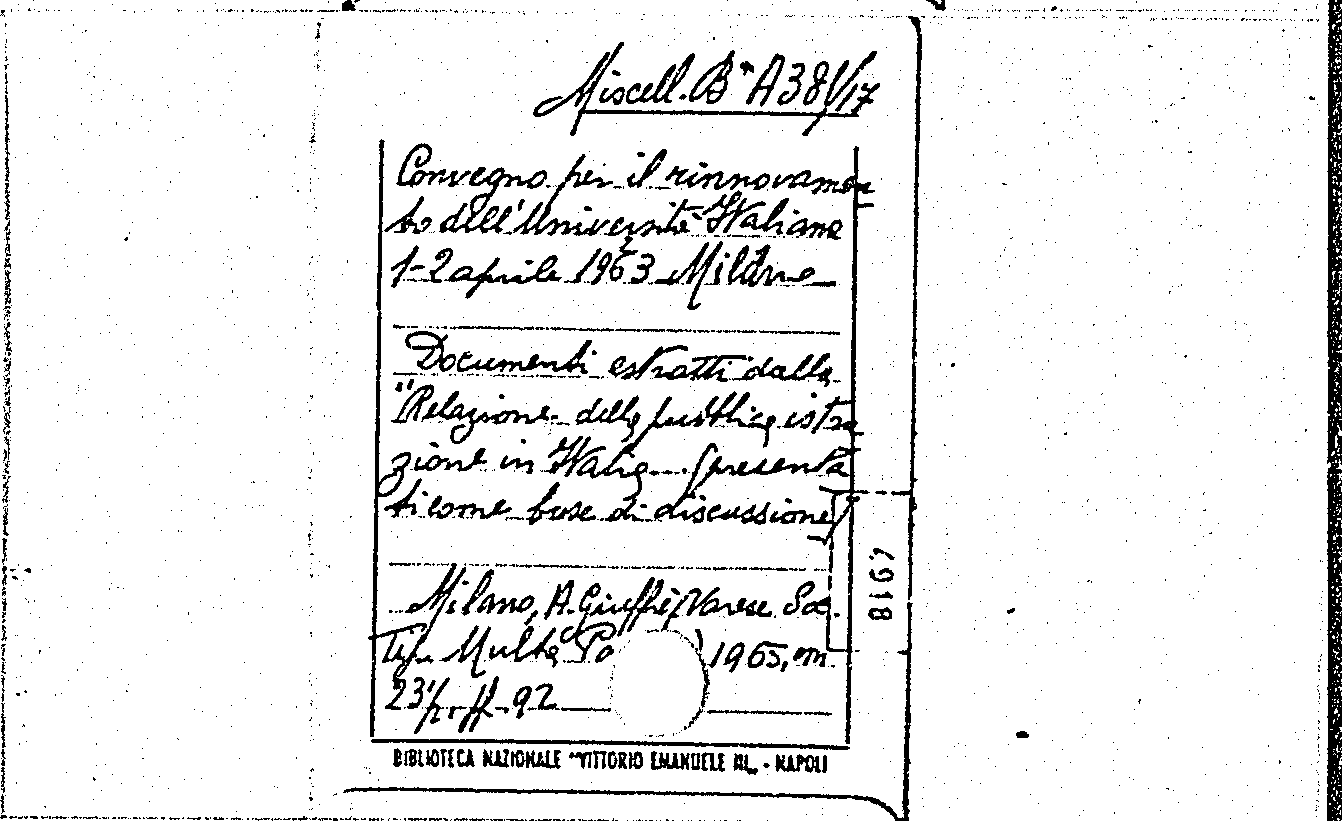 Miscell. B A381/17
Convegno per il rinnovamen
to dell'Università Italiana
1-2 aprile 1963 Milano
Documenti estratti dalla
"Relazione della pubblica istru
zione in Italia (presenta
ti come base di discussione)
Milano, A. Giuffrè, (Varese Soc.
Tip. Multa Pa ) 1963, in
23 1/2 ff. 92
BIBLIOTECA NAZIONALE "VITTORIO EMANUELE III" - NAPOLI
8167